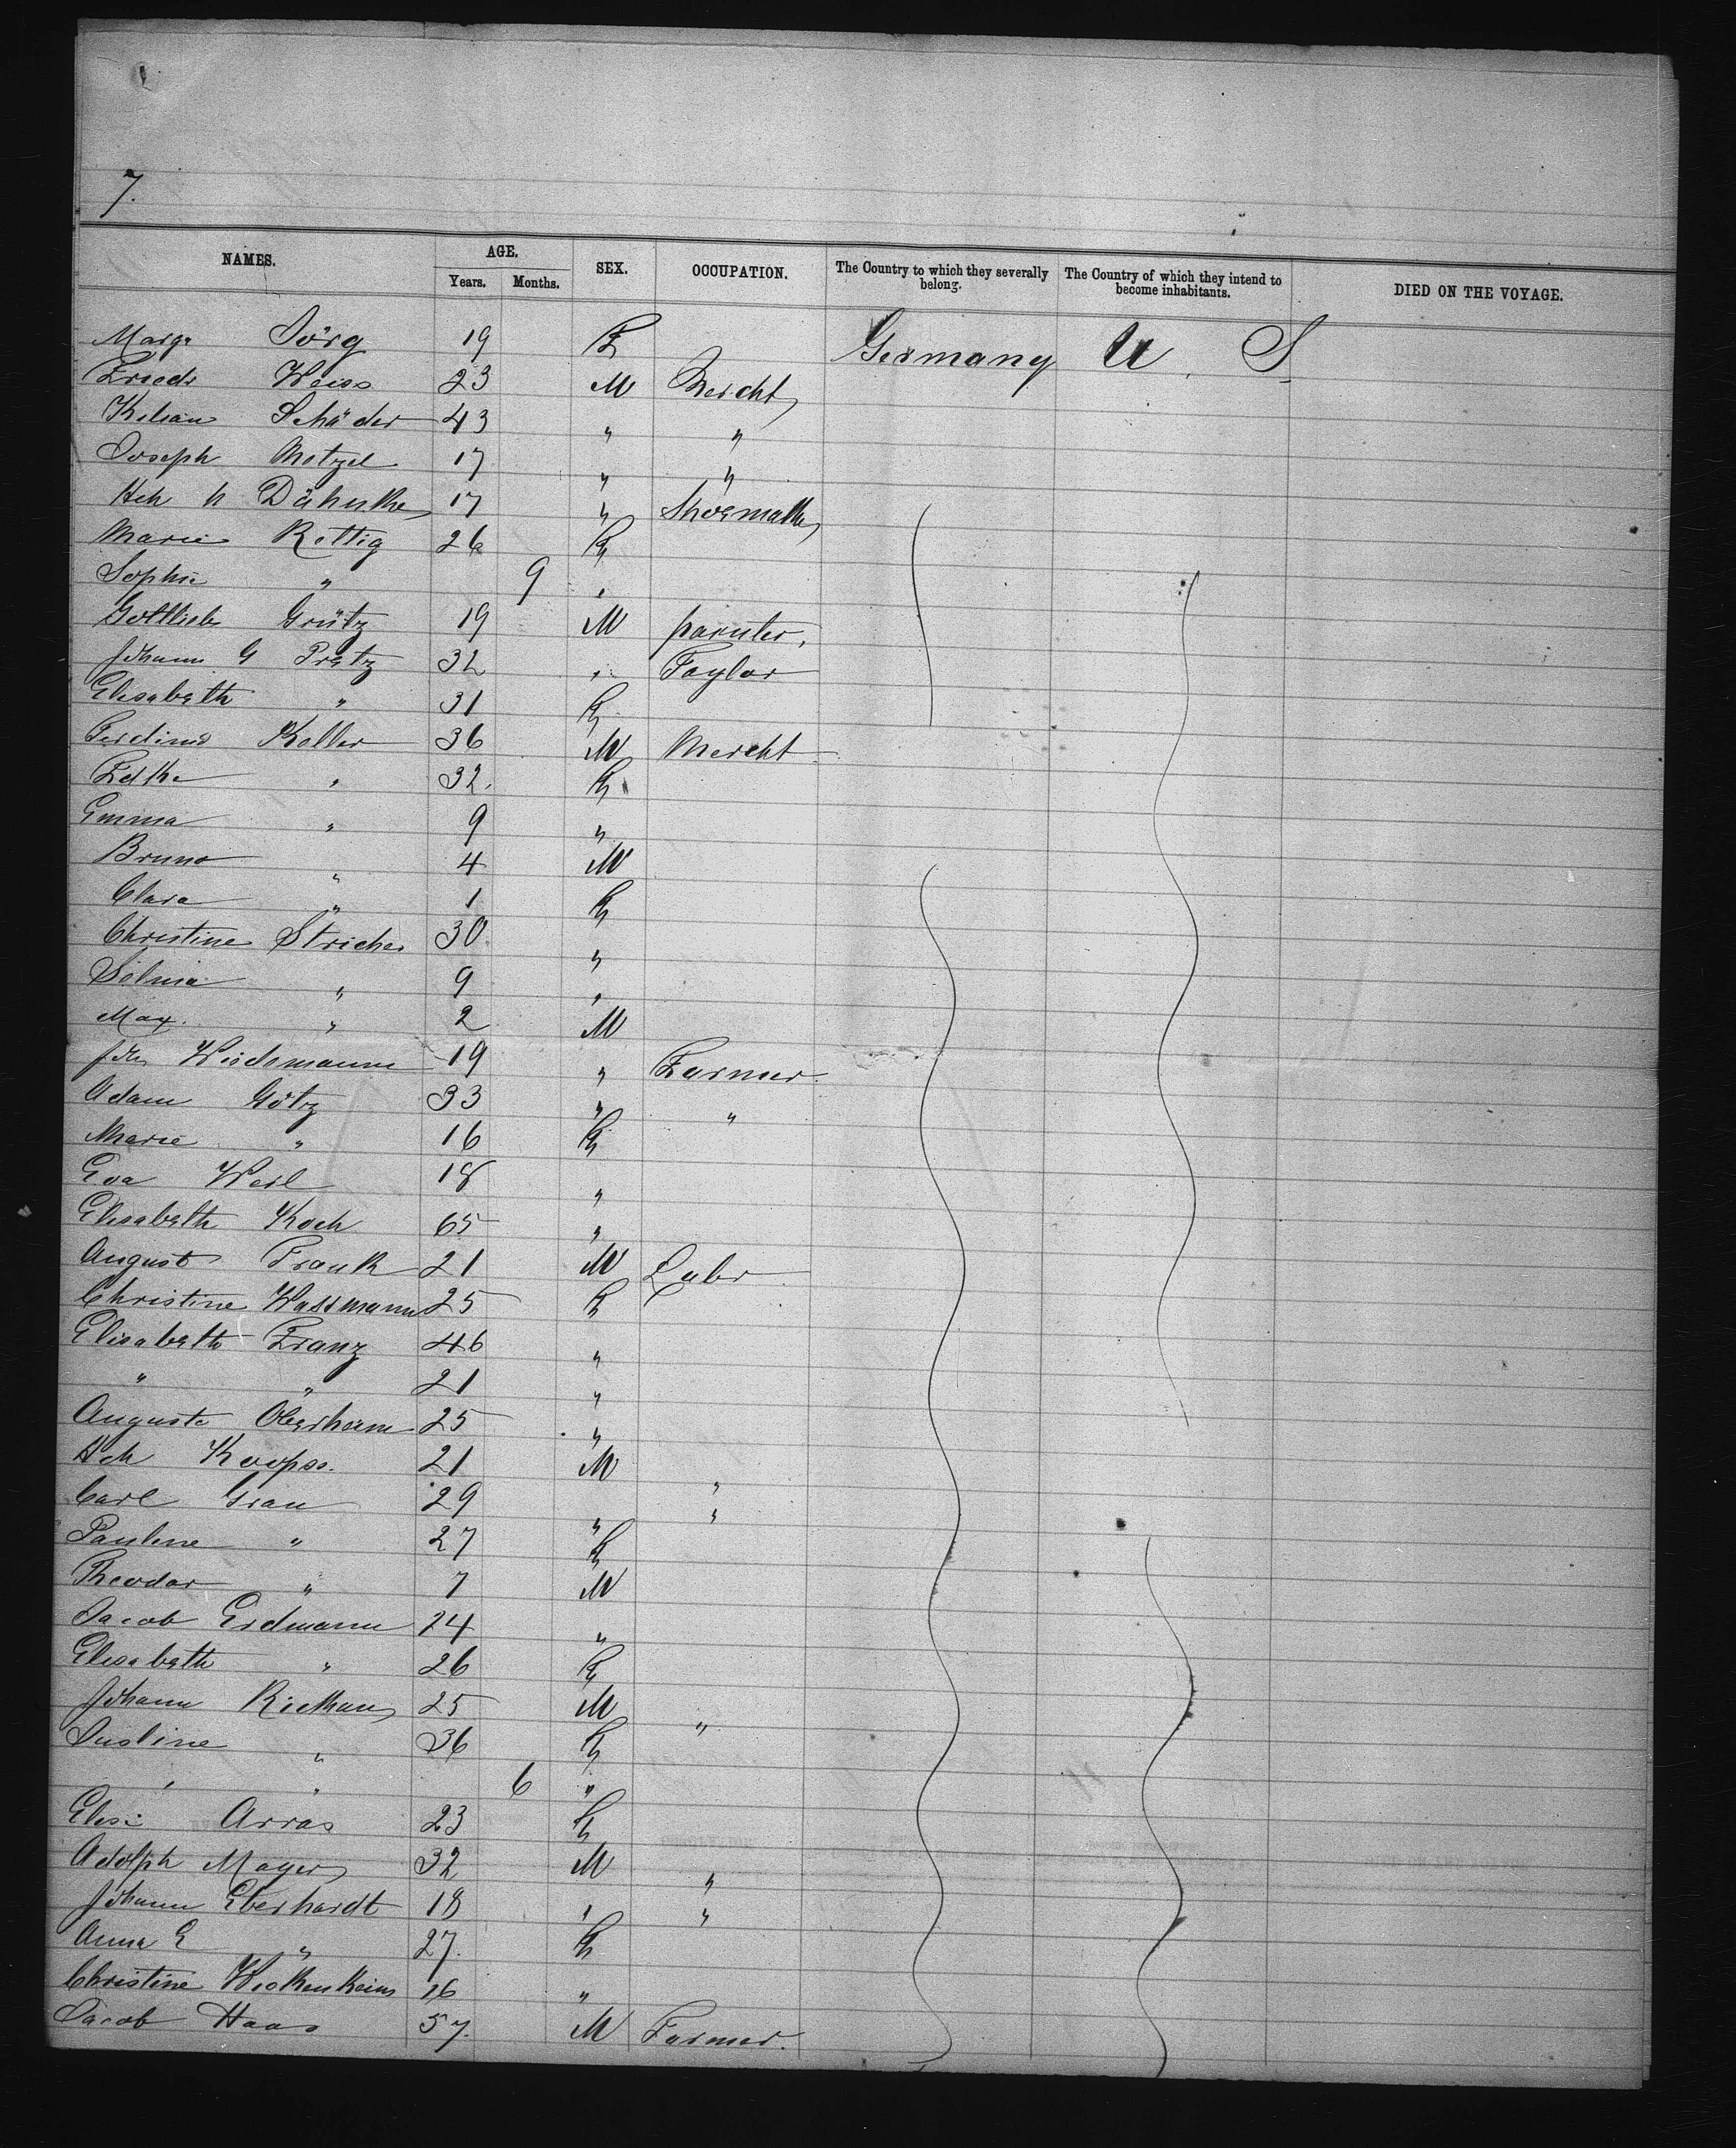 7.
NAMES. AGE. SEX. OCCUPATION. The Country to which they severally belong. The Country of which they intend to become inhabitants. DIED ON THE VOYAGE.
Years. Months.
Marg. Jörg 19 F Germany U. S.
Friedr Weiss 23 M Mercht
Kilian Schäder 43 " "
Joseph Metzel 17 " "
Hch h Dähnke 17 " Shoemakr
Marie Rettig 26 F
Sophie " 9 "
Gottlieb Grütz 19 M painter.
Johann G Pretz 32 " Taylor
Elisabeth " 31 F
Ferdind Keller 36 M Mercht
" 32. F
Emma " 9 "
Bruno " 4 M
Clara " 1 F
Christine Stricher 30 "
Selma " 9 "
Max. " 2 M
Joh Wiedemann 19 " Farmer.
Adam Götz 33 " "
Marie " 16 F
Eva Weil 18 "
Elisabeth Koch 65 "
August Frank 21 M Labr
Christine Wassmann 25 F
Elisabeth Franz 46 "
" " 21 "
Auguste Oberheim 25 "
Hch Koopss. 21 M "
Carl Grau 29 " "
Pauline " 27 F
Theodor " 7 M
Jacob Erdmann 24 "
Elisabeth " 26 F
Johann 25 M "
Justine " 36 F
" " 6 "
Elise Arras 23 F
Adolph Mayer 32 M "
Johann Eberhardt 18 " "
Anna E " 27. F
Christine 16 "
Jacob Haas 57. M Farmer.